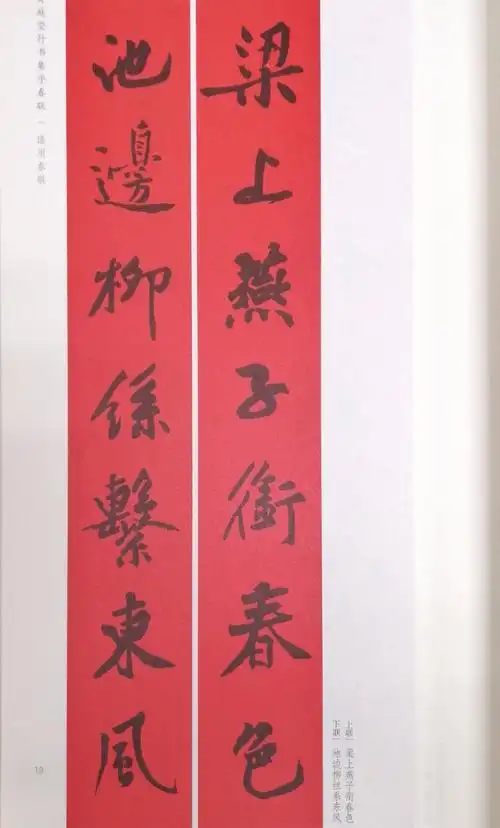 梁上燕子銜春色
池邊柳絲繫東風
上联 | 梁上燕子衔春色
下联 | 池边柳丝系东风
庭坚行书集字春联 | 通用春联
19